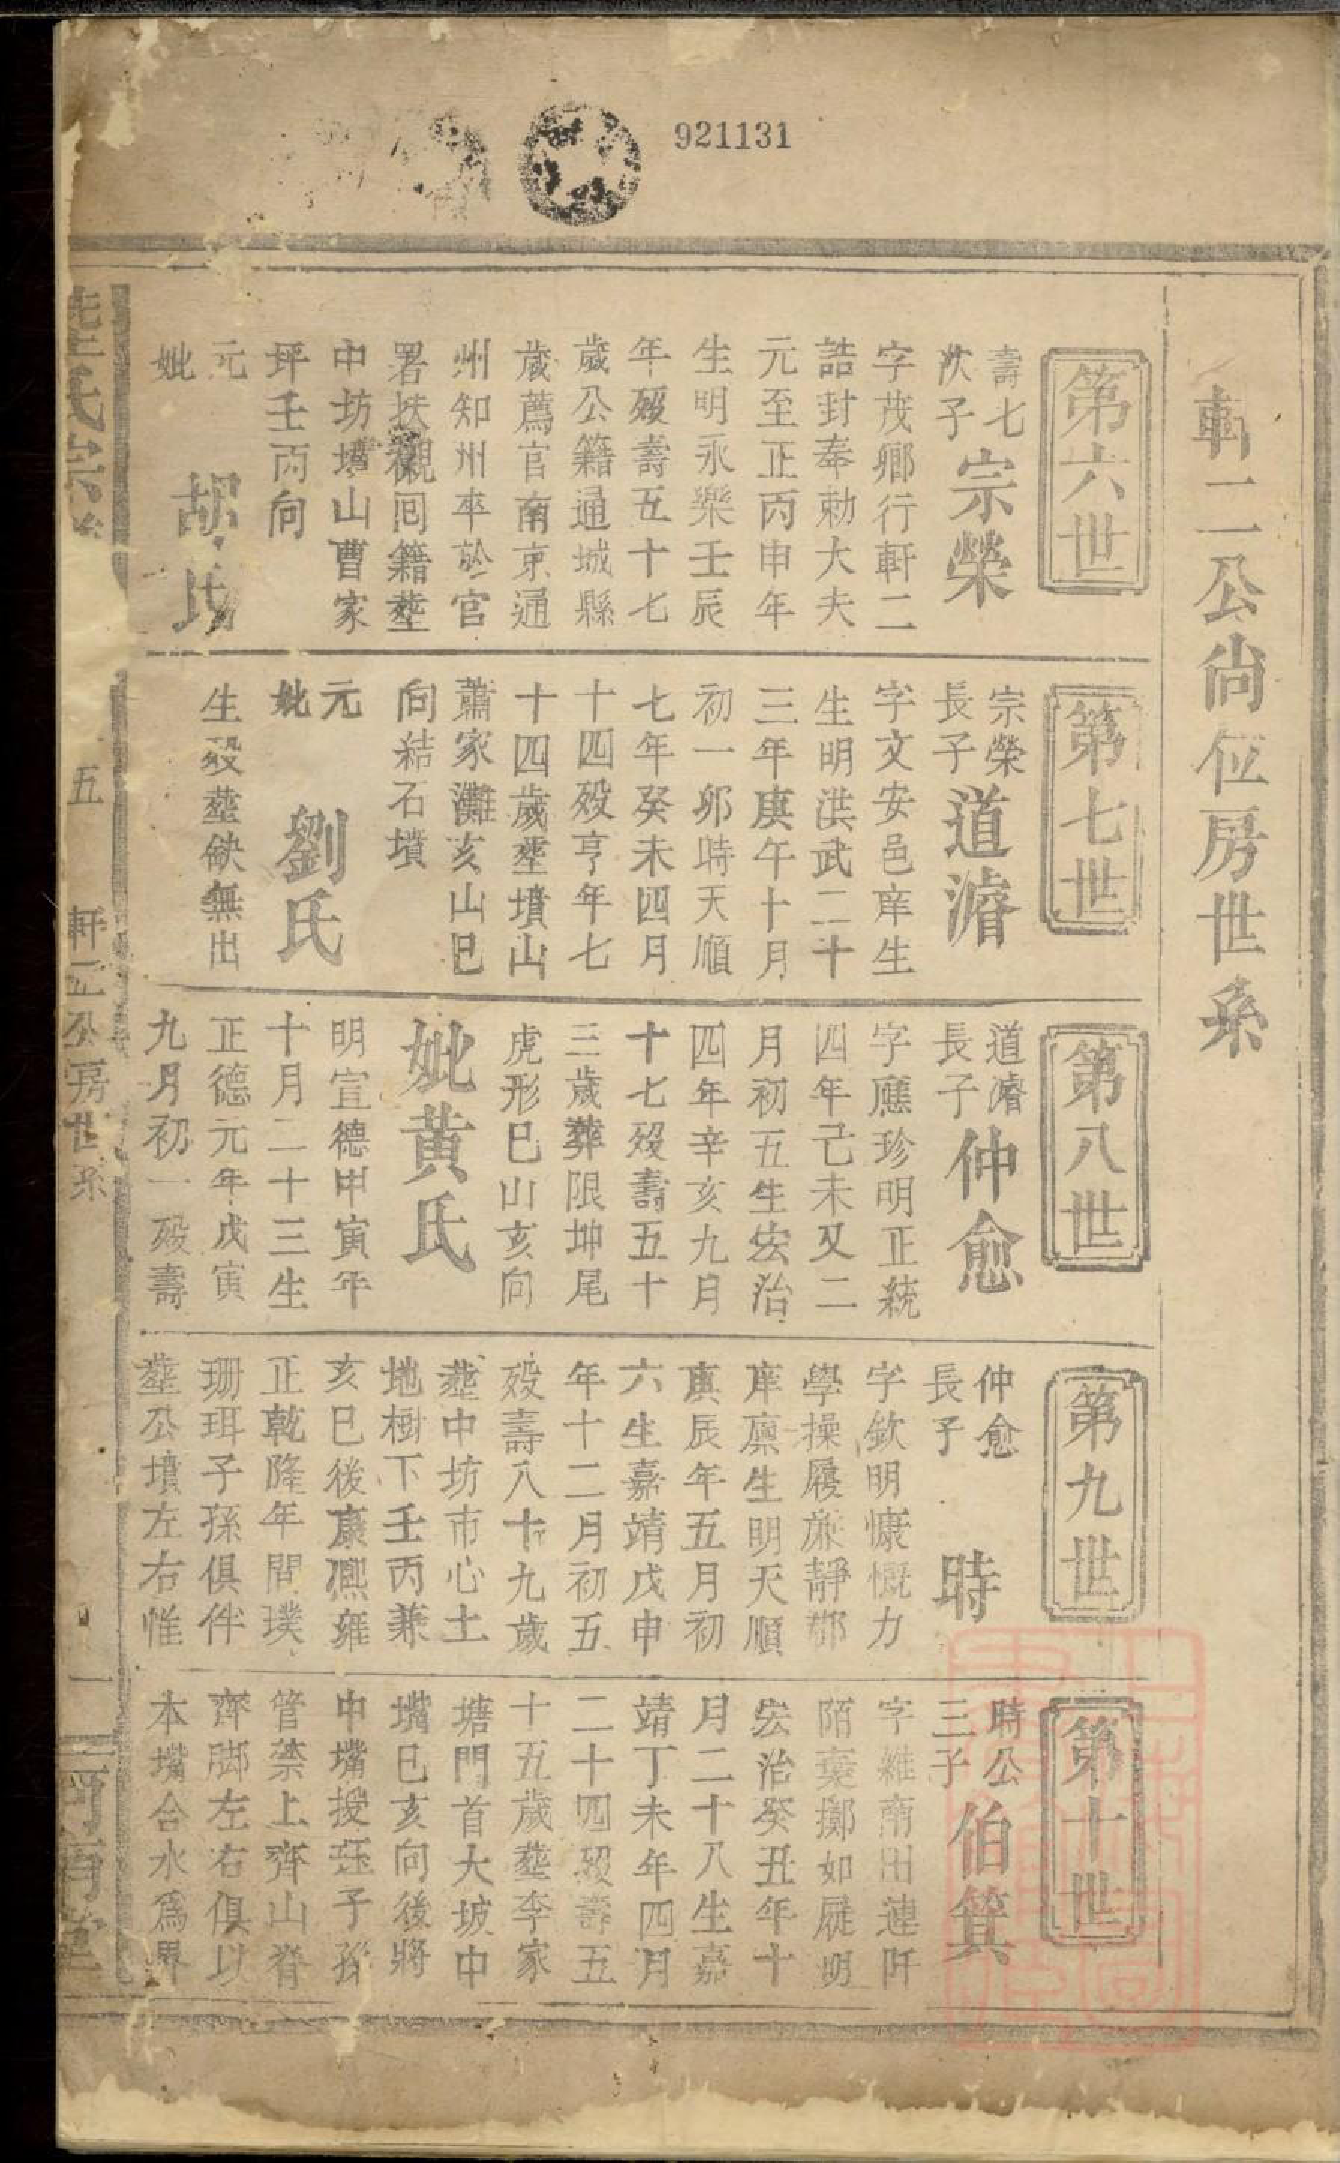 921131
軒二公尙位房世系
第六世
壽七
次子
宗榮
字茂鄉行軒二
誥封奉勅大夫
元至正丙申年
生明永樂壬辰
年歿壽五十七
歲公籍通城縣
歲薦官南京通
州知州卒於官
署扶櫬回籍塟
中坊壋山曹家
坪壬丙向
元
妣
胡氏
第七世
宗榮
長子
道濬
字文安邑庠生
生明洪武二十
三年庚午十月
初一卯時天順
七年癸未四月
十四歿亨年七
十四歲塟墳山
蕭家灘亥山巳
向結石墳
元
妣
劉氏
生歿塟缺無出
第八世
道濬
長子
仲愈
字應珍明正統
四年己未又二
月初五生宏治
四年辛亥九月
十七歿壽五十
三歲葬限坤尾
虎形巳山亥向
妣黃氏
明宣德甲寅年
十月二十三生
正德元年戊寅
九月初一歿壽
第九世
仲愈
長子
時
字欽明慷慨力
學操履旅靜鄉
庠廩生明天順
庚辰年五月初
六生嘉靖戊申
年十二月初五
歿壽八十九歲
塟中坊市心土
地樹下壬丙兼
亥巳後康熈雍
正乾隆年間璞
珊珥子孫俱伴
塟公墳左右惟
第十世
時公
三子
伯箕
字維南田連阡
陌棄擲如屣明
宏治癸丑年十
月二十八生嘉
靖丁未年四月
二十四歿壽五
十五歲塟李家
塘門首大坡中
嘴巳亥向後將
中嘴授玨子孫
管禁上齊山脊
齊脚左右俱以
本嘴合水爲界
氏宗
五
軒二公房世系
一